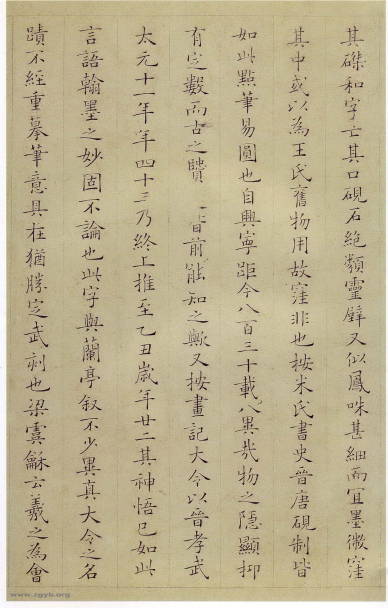 其磔和字亡其口硯石絶類靈璧又似鳳咮甚細而宜墨微窪
其中或以為王氏舊物用故窪非也按米氏書史晉唐硯制皆
如此點筆易圓也自興寧距今八百三十載異哉物之隱顯抑
有定數而古之賸 前能知之歟又按畫記大令以晉孝武
太元十一年年四十三乃終上推至乙丑歲年廿二其神悟已如此
言語翰墨之妙固不論也此字與蘭亭叙不少異真大令之名
蹟不經重摹筆意具在猶勝定武刻也梁虞龢云羲之為會
www.rgyb.org